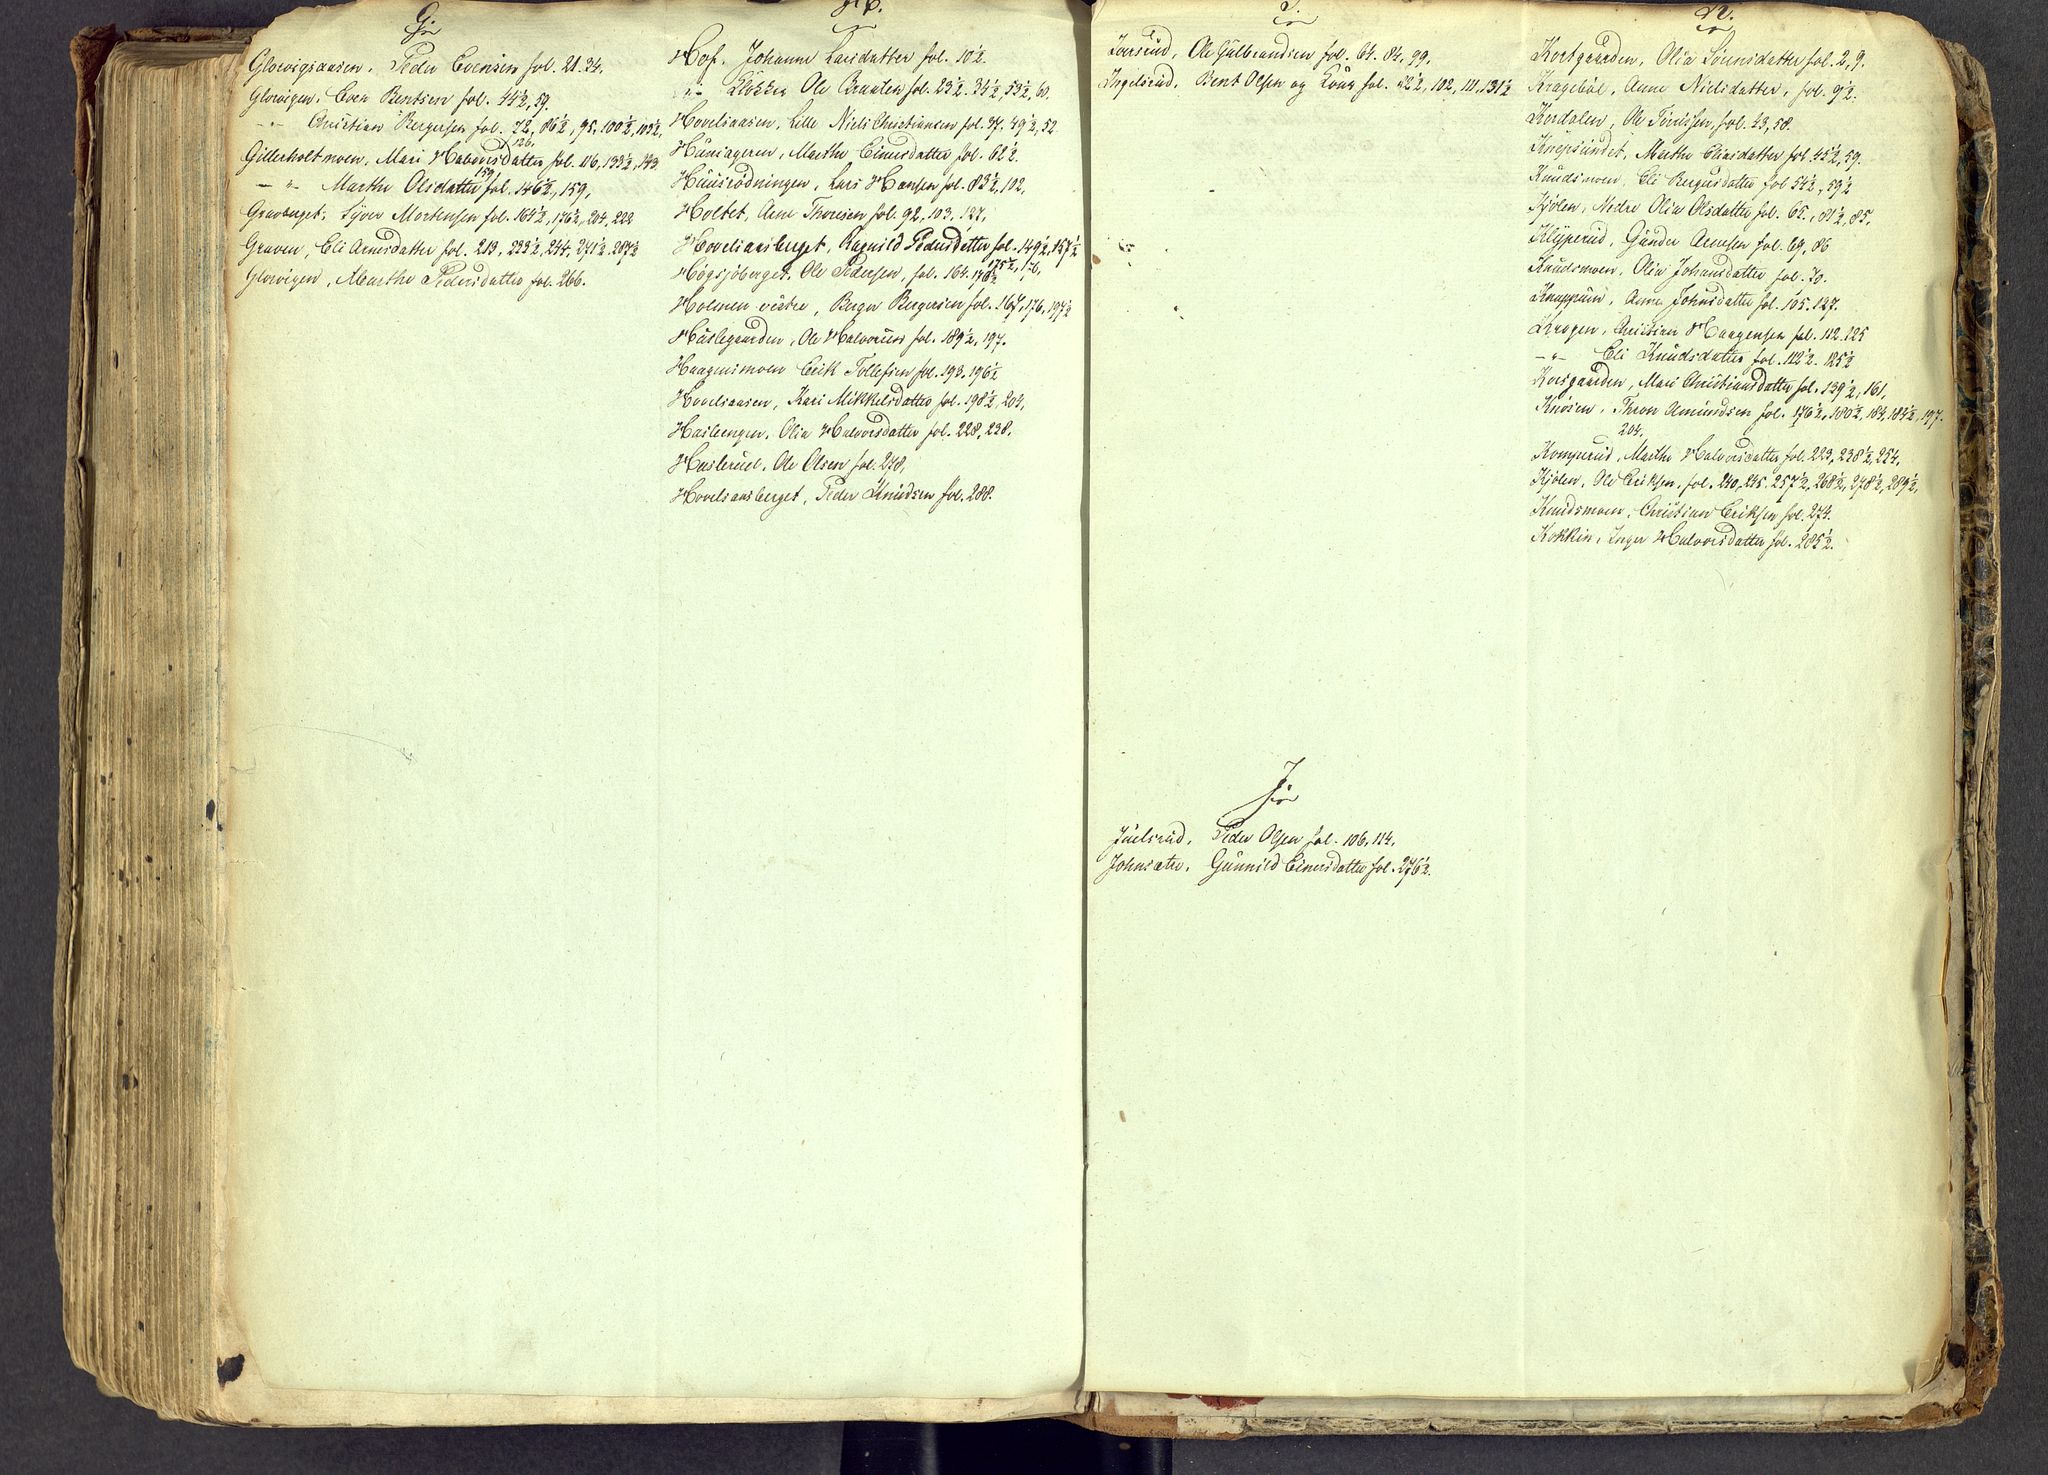 G.
Glorvigsaasen, Peder Evensen fol. 21. 34.
Glorvigen, Even Bentsen fol. 44½, 59.
-"- Christian Bergersen fol. 72, 86½, 95, 100½, 103½,
126,
Gitterholtmoen, Mari Halvorsdatter fol. 116, 133½, 143
159,
-"- Marthe Olsdatter fol. 146½, 159,
Gravberget, Syver Mortensen fol. 164½, 176½, 204, 222
Graven, Eli Arnesdatter fol. 213, 233½, 244, 271½, 287½
Glorvigen, Marthe Pedersdatter fol. 266.
H.
Hof, Johanne Larsdatter fol. 10½
-"- Ole Braaten fol. 23½. 34½, 53½, 60.
Hovelsaasen, Lille Niels Christiansen fol. 37. 49½, 52
Marthe Einersdatter fol. 62½.
Huusrödningen, Lars Hansen fol. 83½, 102,
Holtet, Arne Thoresen fol. 92, 103, 127,
Hovelsaasberget, Ragnild Pedersdatter fol. 149½, 157½
175½, 176,
Högsjöberget, Ole Pedersen, fol. 164. 170½
Holmen vestre, Berger Bergersen fol. 167, 176, 197½
Haslegaarden, Ole Halvorsen fol. 189½, 197.
Haagensmoen Erik Tollefsen fol. 193, 196½
Hovelsaasen, Kari Mikkelsdatter fol. 198½, 204,
Hasleengen, Olia Halvorsdatter fol. 228, 238.
Hasterud, Ole Olsen fol. 278,
Hovelsaasberget, Peder Knudsen fol. 288.
I.
Iversrud, Ole Gulbrandsen fol. 64. 84, 99.
Ingelsrud, Bent Olsen og Kone fol. 22½, 102, 111, 131½
J.
Juelsrud, Peder Olsen fol. 106, 114,
Johnsætre, Gunnild Einersdatter fol. 276½.
K.
Kortgaarden, Olia Tönnesdatter fol. 2, 9.
Krageböl, Anne Nielsdatter, fol. 9½.
Kordalen, Ole Tönnesen, fol. 43, 58.
Knepsundet, Marthe Eliasdatter fol. 45½, 59.
Knudsmoen, Eli Bergersdatter fol. 54½, 59½
Kjölen, Nedre Olia Olsdatter fol. 65, 81½, 85,
Klyperud, Gunder Arnesen fol. 69, 86
Knudsmoen, Olia Johansdatter fol. 70.
Knapperum, Anne Johnsdatter fol. 105. 127.
Krogen, Christian Haagensen fol. 112. 125
-"- Eli Knudsdatter fol. 112½. 125½
Korsgaarden, Mari Christiansdatter fol. 139½, 161,
Knösen, Thron Amundsen fol. 176½, 180½, 184, 184½, 197.
204,
Komperud, Marthe Halvorsdatter fol. 223, 238½, 254,
Kjölen, Ole Eriksen, fol. 240, 245, 257½, 268½, 278½, 289½,
Knudsmoen, Christian Eriksen fol. 274.
Kokkin, Inger Halvorsdatter fol. 285½.